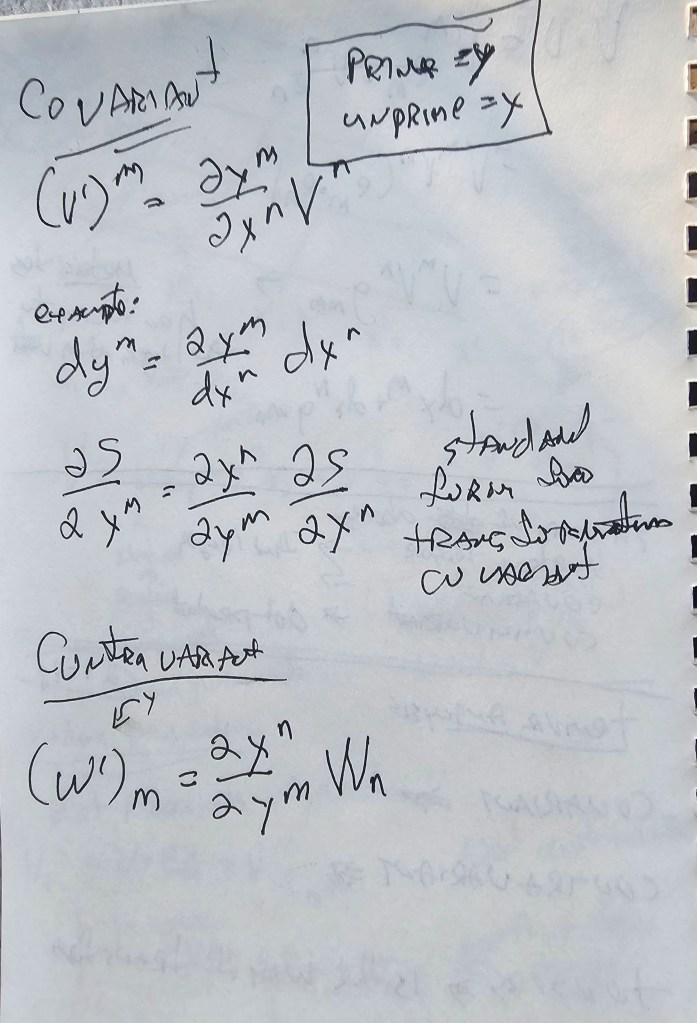 COVARIANT
PRIME = y
UNPRIME = X
(V')^m = ∂y^m/∂x^n V^n
example:
dy^m = ∂y^m/dx^n dx^n
∂S/∂y^m = ∂x^n/∂y^m ∂S/∂x^n
STANDARD
FORM FOR
TRANSFORMATIONS
COVARIANT
CONTRAVARIANT
y
(W')_m = ∂x^n/∂y^m W_n